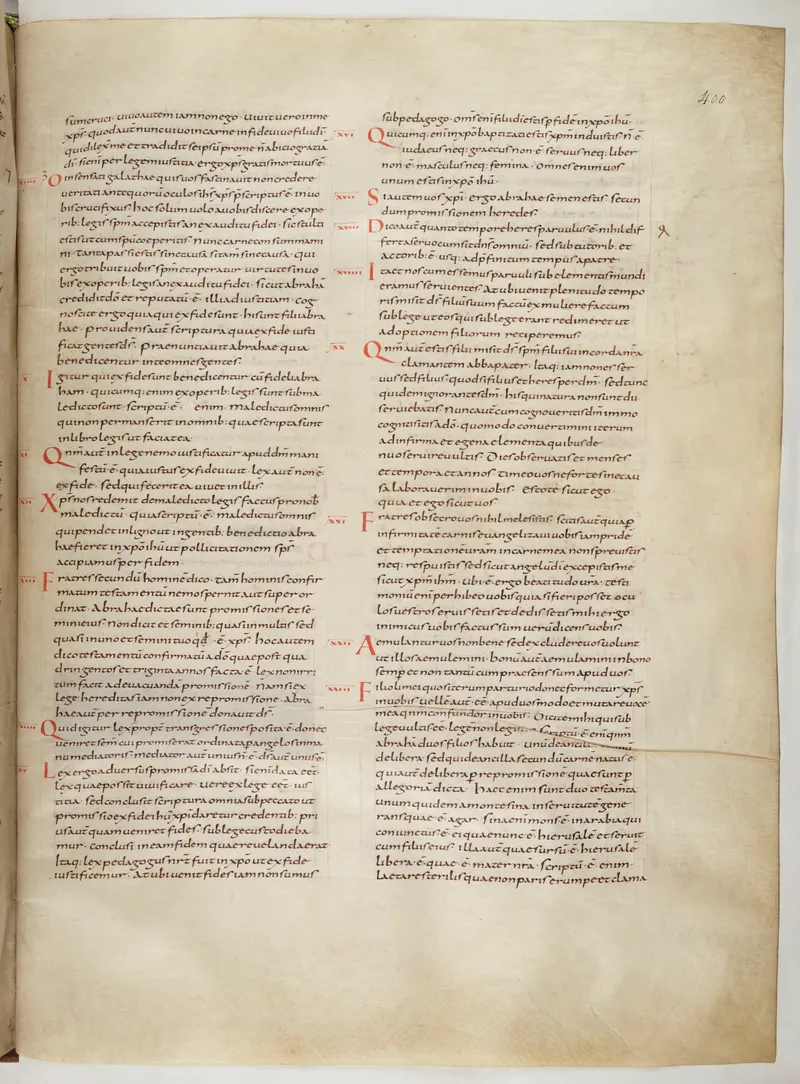 400
sum cruci· uiuo autem iam non ego· uiuit uero in me
xp̄s· quod aut̄ nunc uiuo in carne in fide uiuo filii dī·
qui dilex̄ me et tradidit se ipsū pro me· n̄ abicio gratiā
dī· si enī per legem iustitia· ergo xp̄s gratis mortuus ē·
O insensati galathae quis uos fascinauit non credere
ueritati ante quorū oculos ihs̄ xp̄s p̄scriptus ē· in uo
bis crucifixus· hoc solum uolo a uobis discere ex ope
rib; legis sp̄m accepistis an ex auditu fidei· sic stulti
estis ut cum sp̄u coeperitis· nunc carne consummami
ni· tanta passi estis sine causa si tam̄ sine causa· qui
ergo tribuit uobis sp̄m et operatur uirtutes in uo
bis ex operib; legis an ex auditu fidei· sicut abrahā
credidit dō et reputatū ē· illi ad iustitiam· cog
noscite ergo quia qui ex fide sunt· hi sunt filii abra
hae· prouidens aut̄ scriptura quia ex fide iusti
ficat gentes ds̄· praenuntiauit abrahae quia
benedicentur in te omnes gentes·
x I gitur qui ex fide sunt benedicentur cū fideli abra
ham· quicumq; enim ex operib; legis sunt sub ma
ledicto sunt· scriptū ē· enim· maledictus omnis
qui non permanserit in omnib; quae scripta sunt
in libro legis ut faciat ea·
xi Q nm̄ aut̄ in lege nemo iustificatur apud dm̄ mani
festū ē· quia iustus ex fide uiuit· lex aut̄ non ē·
ex fide· sed qui fecerit ea uiuet in illis·
xii X p̄s nos redemit de maledicto legis factus pro nob̄
maledictū· quia scriptū ē· maledictus omnis
qui pendet in ligno ut in gentib; benedictio abra
hae fieret in xp̄o ihū ut pollicitationem sp̄s
accipiamus per fidem·
xiii F ratres secundū hominē dico· tam̄ hominis confir
matum testamentū nemo spernit aut super or
dinat· abrahae dictae sunt promissiones et se
mini eius· non dicit et seminib; quasi in multis sed
quasi in uno et semini tuo qd̄· ē· xp̄s· hoc autem
dico testamentū confirmatū a dō quae post qua
dringentos et triginta annos facta ē· lex non irri
tum facit ad euacuandā promissionē· nam si ex
lege hereditas iam non ex repromissione· abra
hae aut̄ per repromissionē donauit ds̄·
xiiii Q uid igitur lex propt̄ transgressiones posita ē· donec
ueniret sem̄ cui promiserat ordinata p angelos in ma
nu mediatoris mediator aut̄ unius n̄· ē· ds̄ aut̄ unus ē·
xv L ex ergo aduersus promissa dī absit· si enī data eēt·
lex quae posset uiuificare· uere ex lege eēt· ius
titia· sed conclusit scriptura omnia sub peccato ut
promissio ex fide ihū xp̄i daretur credentib; pri
us aut̄ quam ueniret fides· sub lege custodieba
mur· conclusi in eam fidem quae reuelanda erat
Itaq; lex pedagogus nr̄ fuit in xp̄o ut ex fide
iustificemur· At ubi uenit fides iam non sumus
sub pedagogo· om̄s enī filii dī estis p fidē in xp̄o ihū·
xvi Q uicumq; enī in xp̄o baptizati estis xp̄m induistis n̄ ē·
iudaeus neq; graecus non ē· seruus neq; liber
non ē· masculus neq; femina· omnes enim uos
unum estis in xp̄o ihū·
xvii S i aut̄ em uos xp̄i· ergo abrahae semen estis secun
dum promissionem heredes·
xviii D ico aut̄ quanto tempore heres paruulus ē· nihil dif
fert a seruo cum sit dn̄s omniū· sed sub tutorib; et
actorib; ē· usq; ad p̄finitum tempus a patre·
xviiii I ta et nos cum essemus paruuli sub elementis mundi
eramus seruientes· At ubi uenit plenitudo tempo
ris misit ds̄ filiū suum factū ex muliere factum
sub lege ut eos qui sub lege erant redimeret ut
adoptionem filiorum reciperemus·
xx Q nm̄ aut̄ estis filii misit ds̄ sp̄m filii sui in corda nr̄a
clamantem abba pater· Itaq; iam non es ser
uus sed filius· quod si filius et heres per dm̄· sed tunc
quidem ignorantes dm̄· his qui natura non sunt dii
seruiebatis· Nunc aut̄ cum cognoueritis dm̄ immo
cogniti sitis a dō· quomodo conuertimini iterum
ad infirma et egena elementa quibus de
nuo seruire uultis· Dies obseruatis et menses
et tempora et annos· timeo uos ne forte sine cau
sa laborauerim in uobis· Estote sicut ego·
quia et ego sicut uos
xxi F ratres obsecro uos nihil me lesistis· scitis aut̄ quia p
infirmitatē carnis euangelizaui uobis iam pride
et temptationē uram in carne mea non spreuistis
neq; respuistis sed sicut angelū dī excepistis me
sicut xp̄m ihm̄· ubi ē· ergo beatitudo ura· testi
moniū enī perhibeo uobis quia si fieri posset ocu
los uestros eruissetis et dedissetis mihi ergo
inimicus uobis factus sum uerū dicens uobis·
xxii A emulantur uos non bene sed excludere uos uolunt
ut illos aemulemini· bonū aut̄ aemulamini in bono
semp et non tantū cum praesens sum apud uos·
xxiii F ilioli mei quos iterum parturio donec formetur xp̄s
in uobis uellē aut̄ eē· apud uos modo et mutare uocē
mea qnm̄ confundor in uobis· Dicite mihi qui sub
lege uultis eē· legē non legistis· Scriptū ē· enī qnm̄
abrahā duos filios habuit· unū de ancilla
de libera· sed qui de ancilla secundū carnē natus ē·
qui aut̄ de libera p repromissionē· quae sunt p
allegoriā dicta· haec enim sunt duo testamta
unum quidem a monte sina in seruitutē gene
rans quae· ē· agar· sina enī mons ē· in arabia qui
coniunctus ē· ei quae nunc ē· hierusalē et seruit
cum filiis eius· illa aut̄ quae sursū· ē· hierusalē·
libera ē· quae· ē· mater nr̄a· scriptū· ē· enim·
laetare sterilis quae non paris erumpe et clama